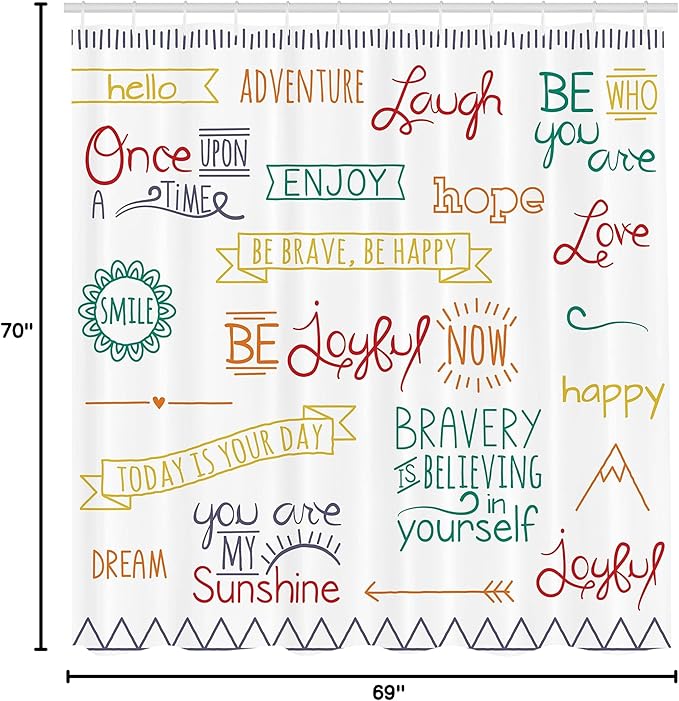 hello
ADVENTURE
Laugh
BE WHO
you are
Once UPON
A TIME
ENJOY
hope
Love
BE BRAVE, BE HAPPY
SMILE
BE Joyful NOW
happy
TODAY IS YOUR DAY
BRAVERY
IS BELIEVING
in
yourself
you are
MY
Sunshine
DREAM
Joyful
70"
69"